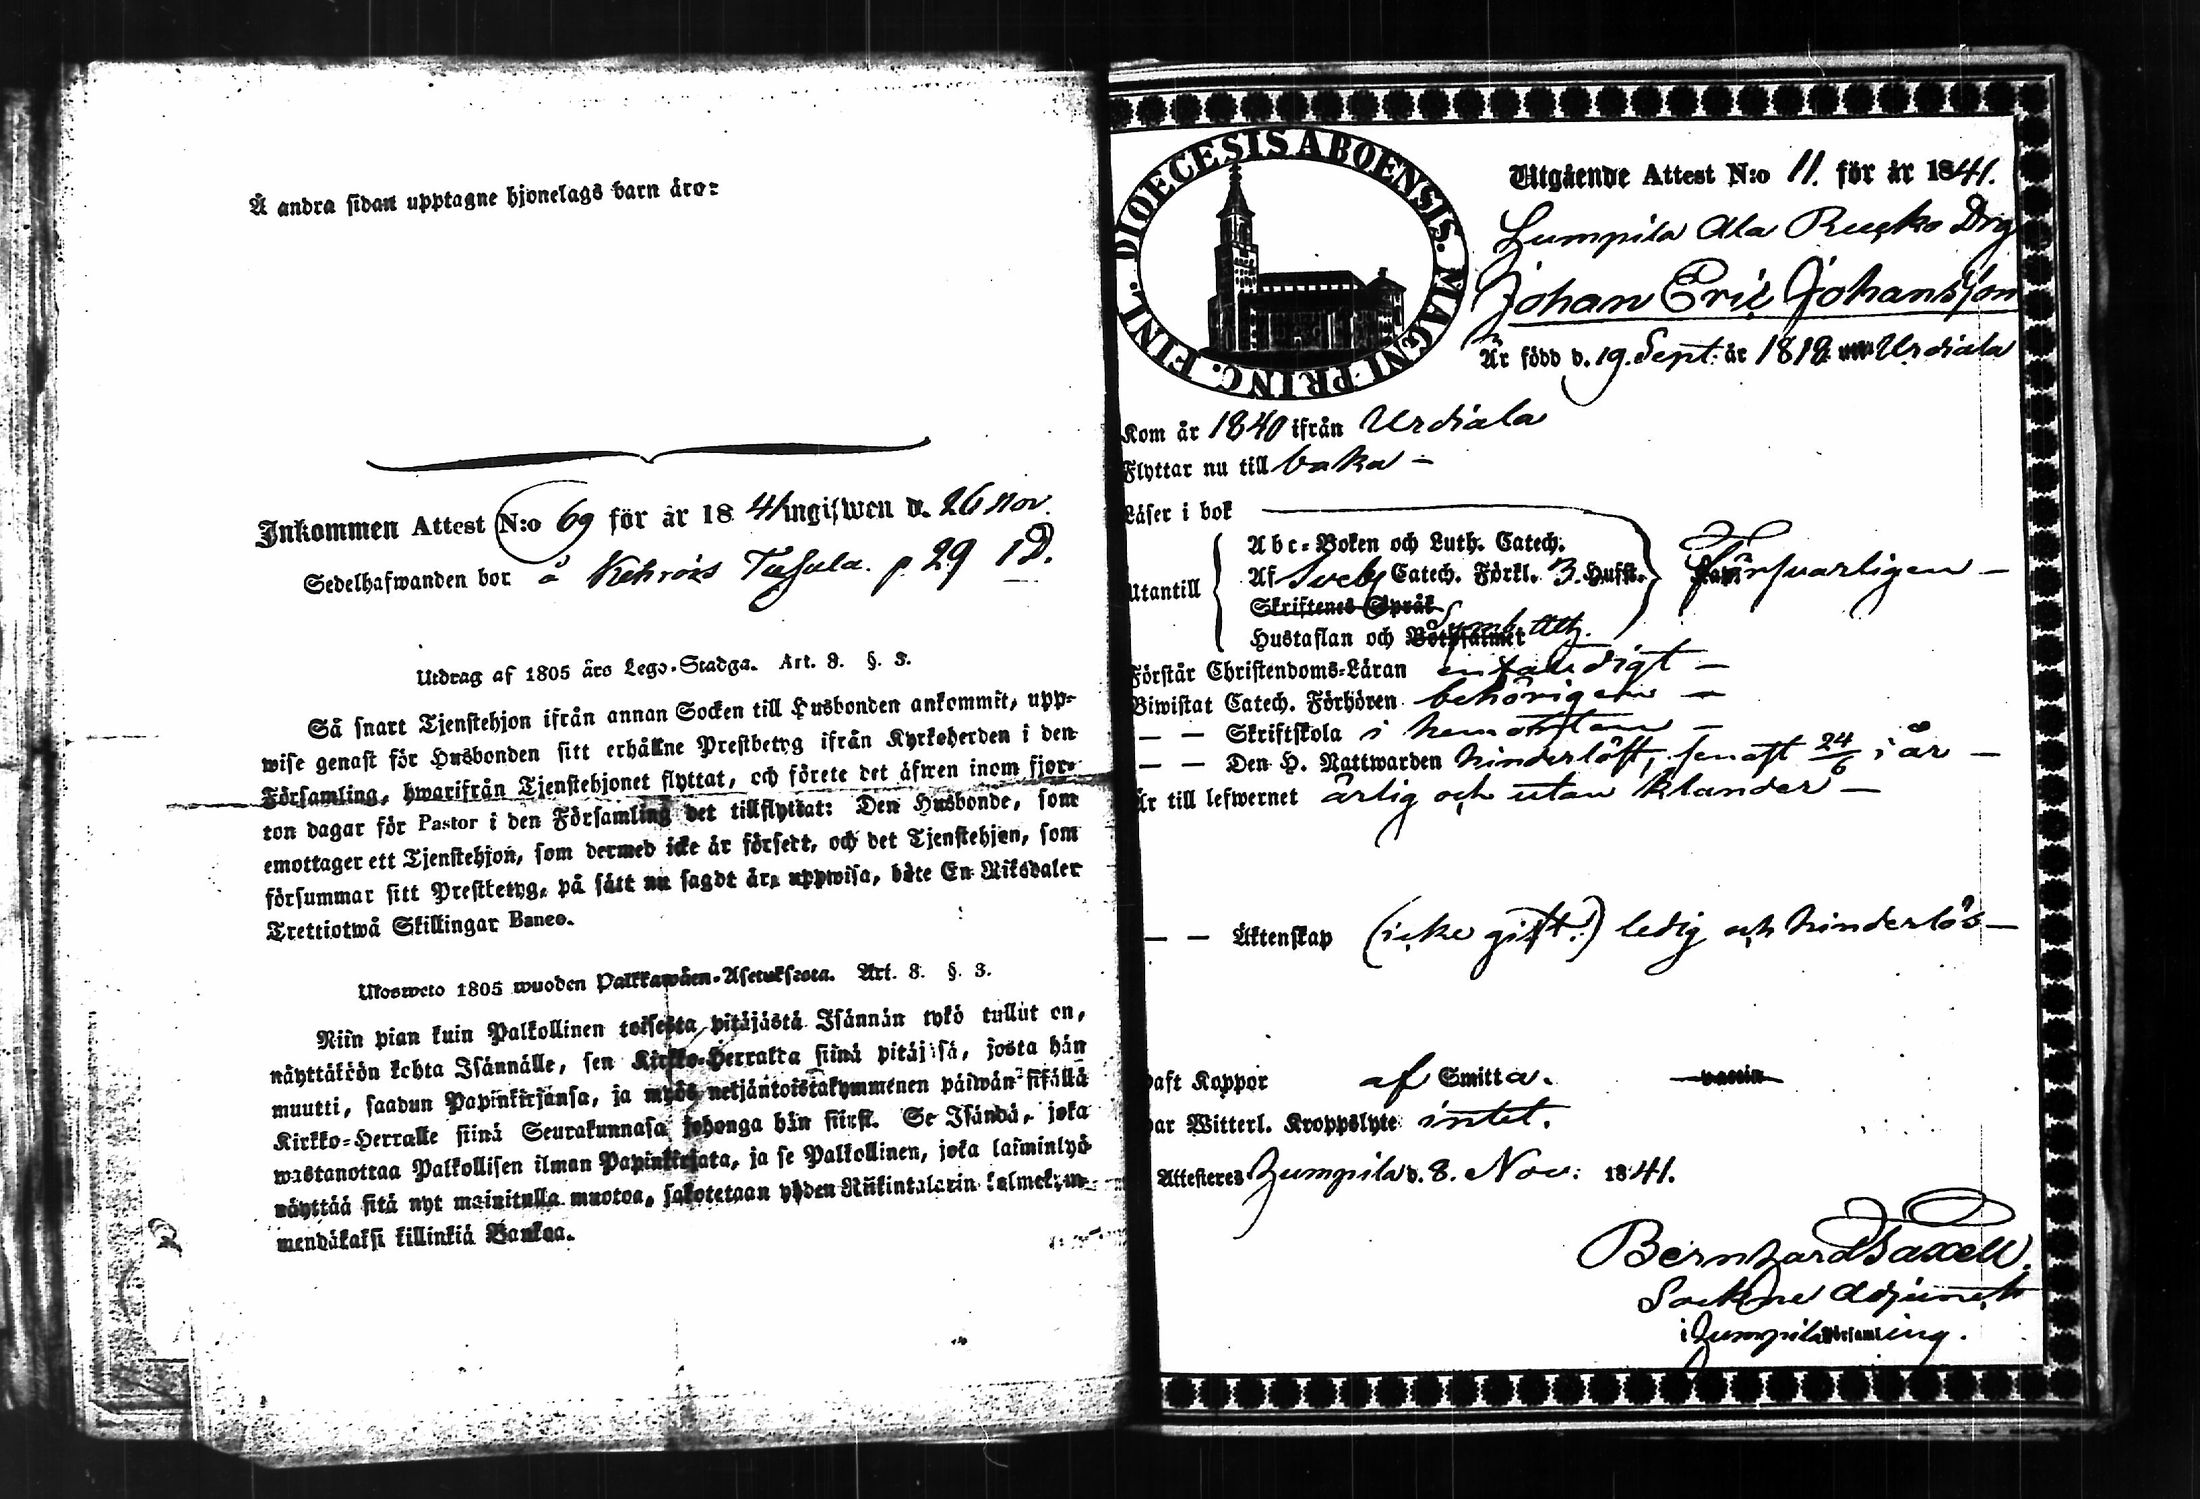 Å andra sidan upptagne hjonelags barn äro:
Inkommen Attest N:o 69 för år 1841 ingifwen d. 26 Nov.
Sedelhafwanden bor å Kehrois p 29 1D.
Utdrag af 1805 års Lego-Stadga. Art. 8. §. 3.
Så snart Tjenstehjon ifrån annan Socken till Husbonden ankommit, upp-
wise genast för Husbonden sitt erhållne Prestbetyg ifrån Kyrkoherden i den
Församling, hwarifrån Tjenstehjonet flyttat, och förete det äfwen inom fjor-
ton dagar för Pastor i den Församling det tillflyttat: Den Husbonde, som
emottager ett Tjenstehjon, som dermed icke är försedt, och det Tjenstehjon, som
försummar sitt Prestbetyg, på sätt nu sagdt är, uppwisa, böte En Riksdaler
Trettiotwå Skillingar Banco.
Uloswето 1805 wuoden Palkkawäen-Asetuksesta. Art. 8. §. 3.
Niin pian kuin Palkollinen toisesta pitäjästä Isännän tykö tullut on,
näyttäköön kohta Isännälle, sen Kirkko-Herralta siinä pitäjäsä, josta hän
muutti, saadun Papinkirjansa, ja myös neljäntoistakymmenen päiwän sisällä
Kirkko-Herralle siinä Seurakunnasa johonga hän siirsi. Se Isändä, joka
wastanottaa Palkollisen ilman Papinkirjata, ja se Palkollinen, joka laiminlyö
näyttää sitä nyt mainitulla muotoa, sakotetaan yhden Riikintalarin kolmekym-
mendäkaksi killinkiä Bankoa.
DIOECESIS ABOENSIS. MAGNI PRINC. FINL.
Utgående Attest N:o 11. för år 1841.
Zumpila Ala Drg
Johan Eric Johansson
Är född d. 19. Sept. år 1819 Urdiala
Kom år 1840 ifrån Urdiala
Flyttar nu till baka –
Läser i bok
Abc-Boken och Luth. Catech.
Utantill Af Sveb Catech. Förkl. 3. Hufst. Försvarligen –
Skriftenes Språk
Hustaflan och Botpsalmer Symb. Ath.
Förstår Christendoms-Läran enfaldigt –
Biwistat Catech. Förhören behörigen –
– – Skriftskola i hemorten –
– – Den H. Nattwarden hinderlöst, senast 24/6 i år –
Är till lefwernet ärlig och utan klander –
– – Äktenskap (icke gift.) ledig och hinderlös –
Haft Koppor af Smitta. vaccin
Har Witterl. Kroppslyte intet.
Attesteres Zumpila d. 8. Nov: 1841.
Bernhard Taxell.
Sockne Adjunct
i Zumpila Församling.